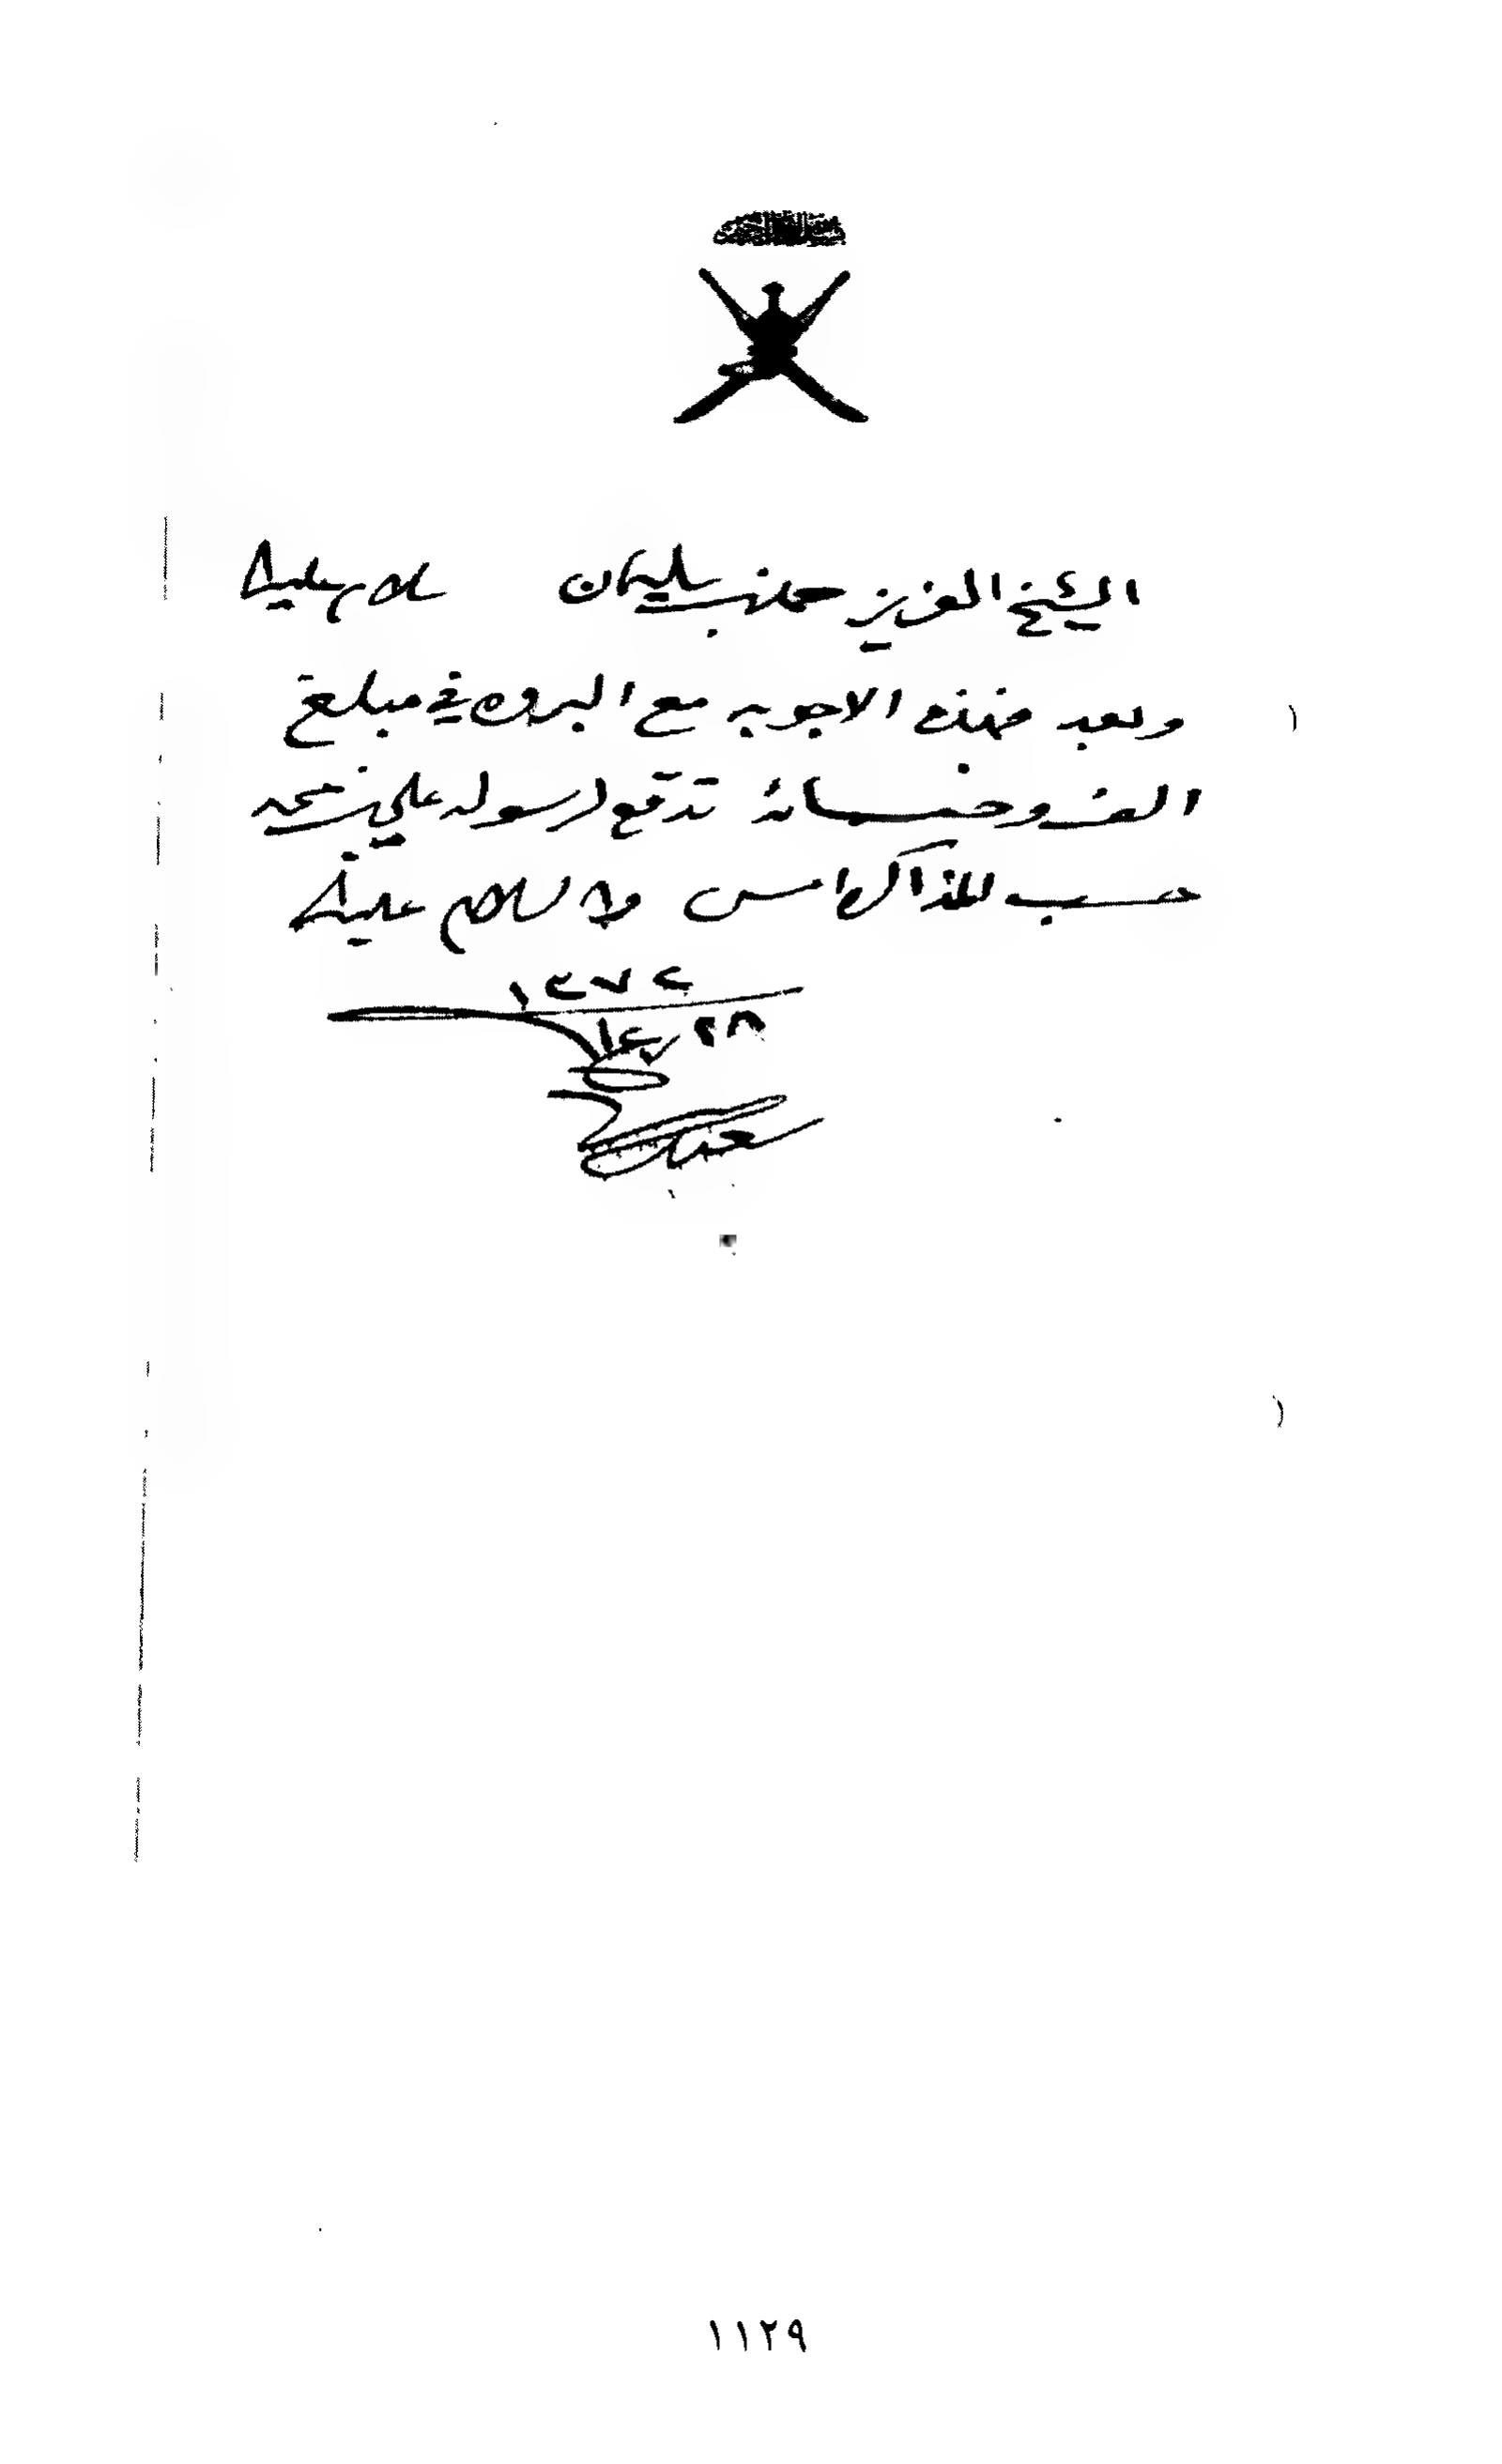 الشيخ العزيز حمد بن سليمان سلام عليك
وبعد فهذه الاجوبه مع البروه في مبلغ
الف وخمسمائة تدفع لرسوله علي بن محمد
حسب المذاكره امس والسلام عليك
١٣٧٢
سعيد
١١٢٩